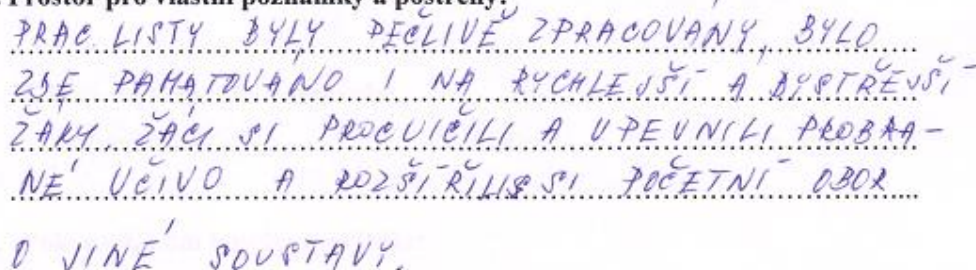 Prostor pro vlastní poznámky a postřehy:
PRAC. LISTY BYLY PEČLIVĚ ZPRACOVANÝ, BYLO
ZDE PAMATOVÁNO I NA RYCHLEJŠÍ A BYSTŘEJŠÍ
ŽÁKY. ŽÁCI SI PROCVIČILI A UPEVNILI PROBRA-
NÉ UČIVO A ROZŠÍŘILI SI POČETNÍ OBOR
O JINÉ SOUSTAVY.